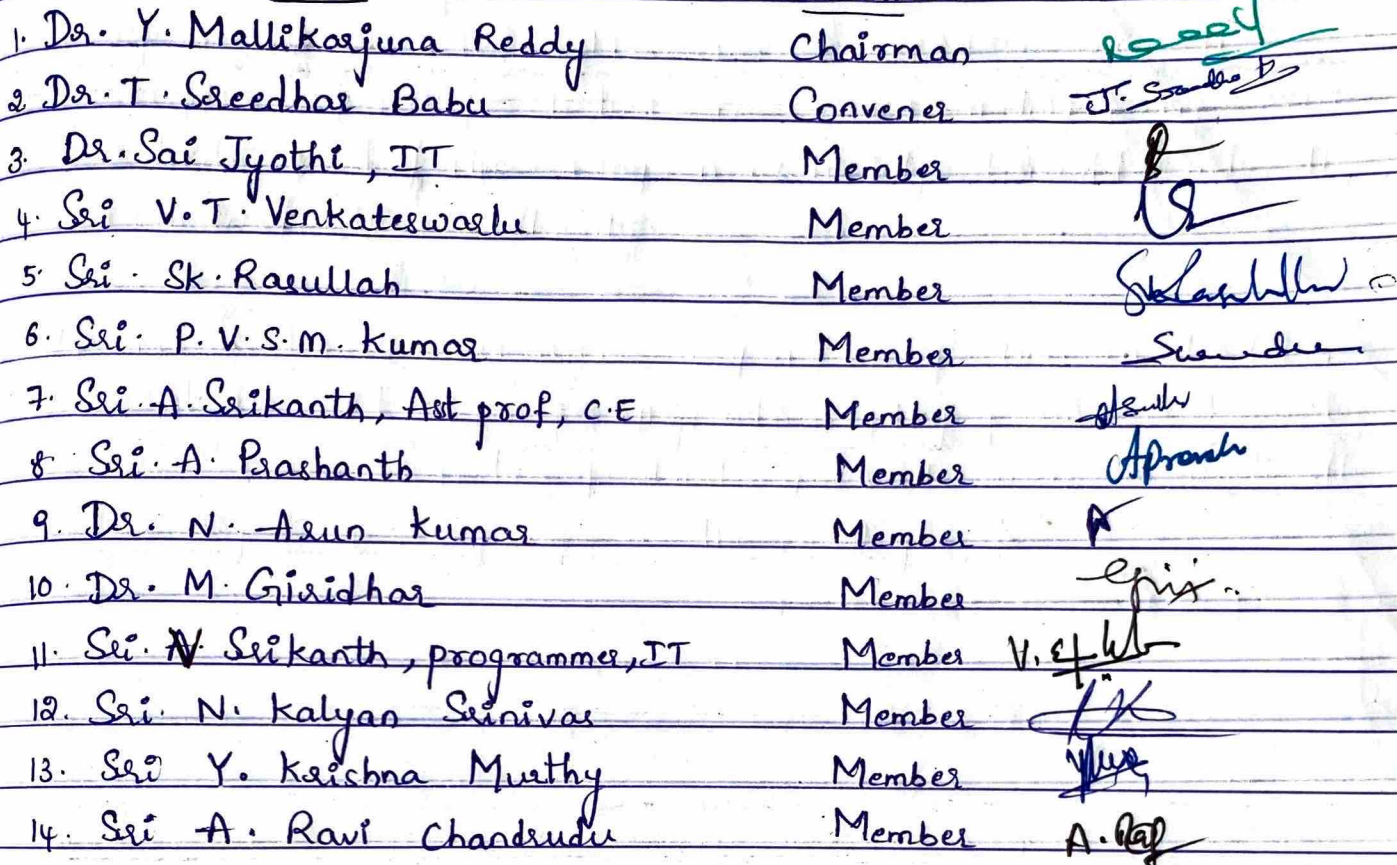 1. Dr. Y. Mallikarjuna Reddy Chairman Reddy
2 Dr. T. Sreedhar Babu Convener T. Sreedhar B
3. Dr. Sai Jyothi, IT Member
4. Sri V. T. Venkateswarlu Member
5. Sri. Sk. Rasullah Member
6. Sri. P. V. S. M. Kumar Member
7. Sri. A. Srikanth, Ast prof, C.E Member
8 Sri. A. Prashanth Member
9. Dr. N. Arun Kumar Member
10. Dr. M. Giridhar Member
11. Sri. V. Srikanth, programmer, IT Member
12. Sri. N. Kalyan Srinivas Member
13. Sri Y. Krishna Murthy Member
14. Sri A. Ravi Chandrudu Member